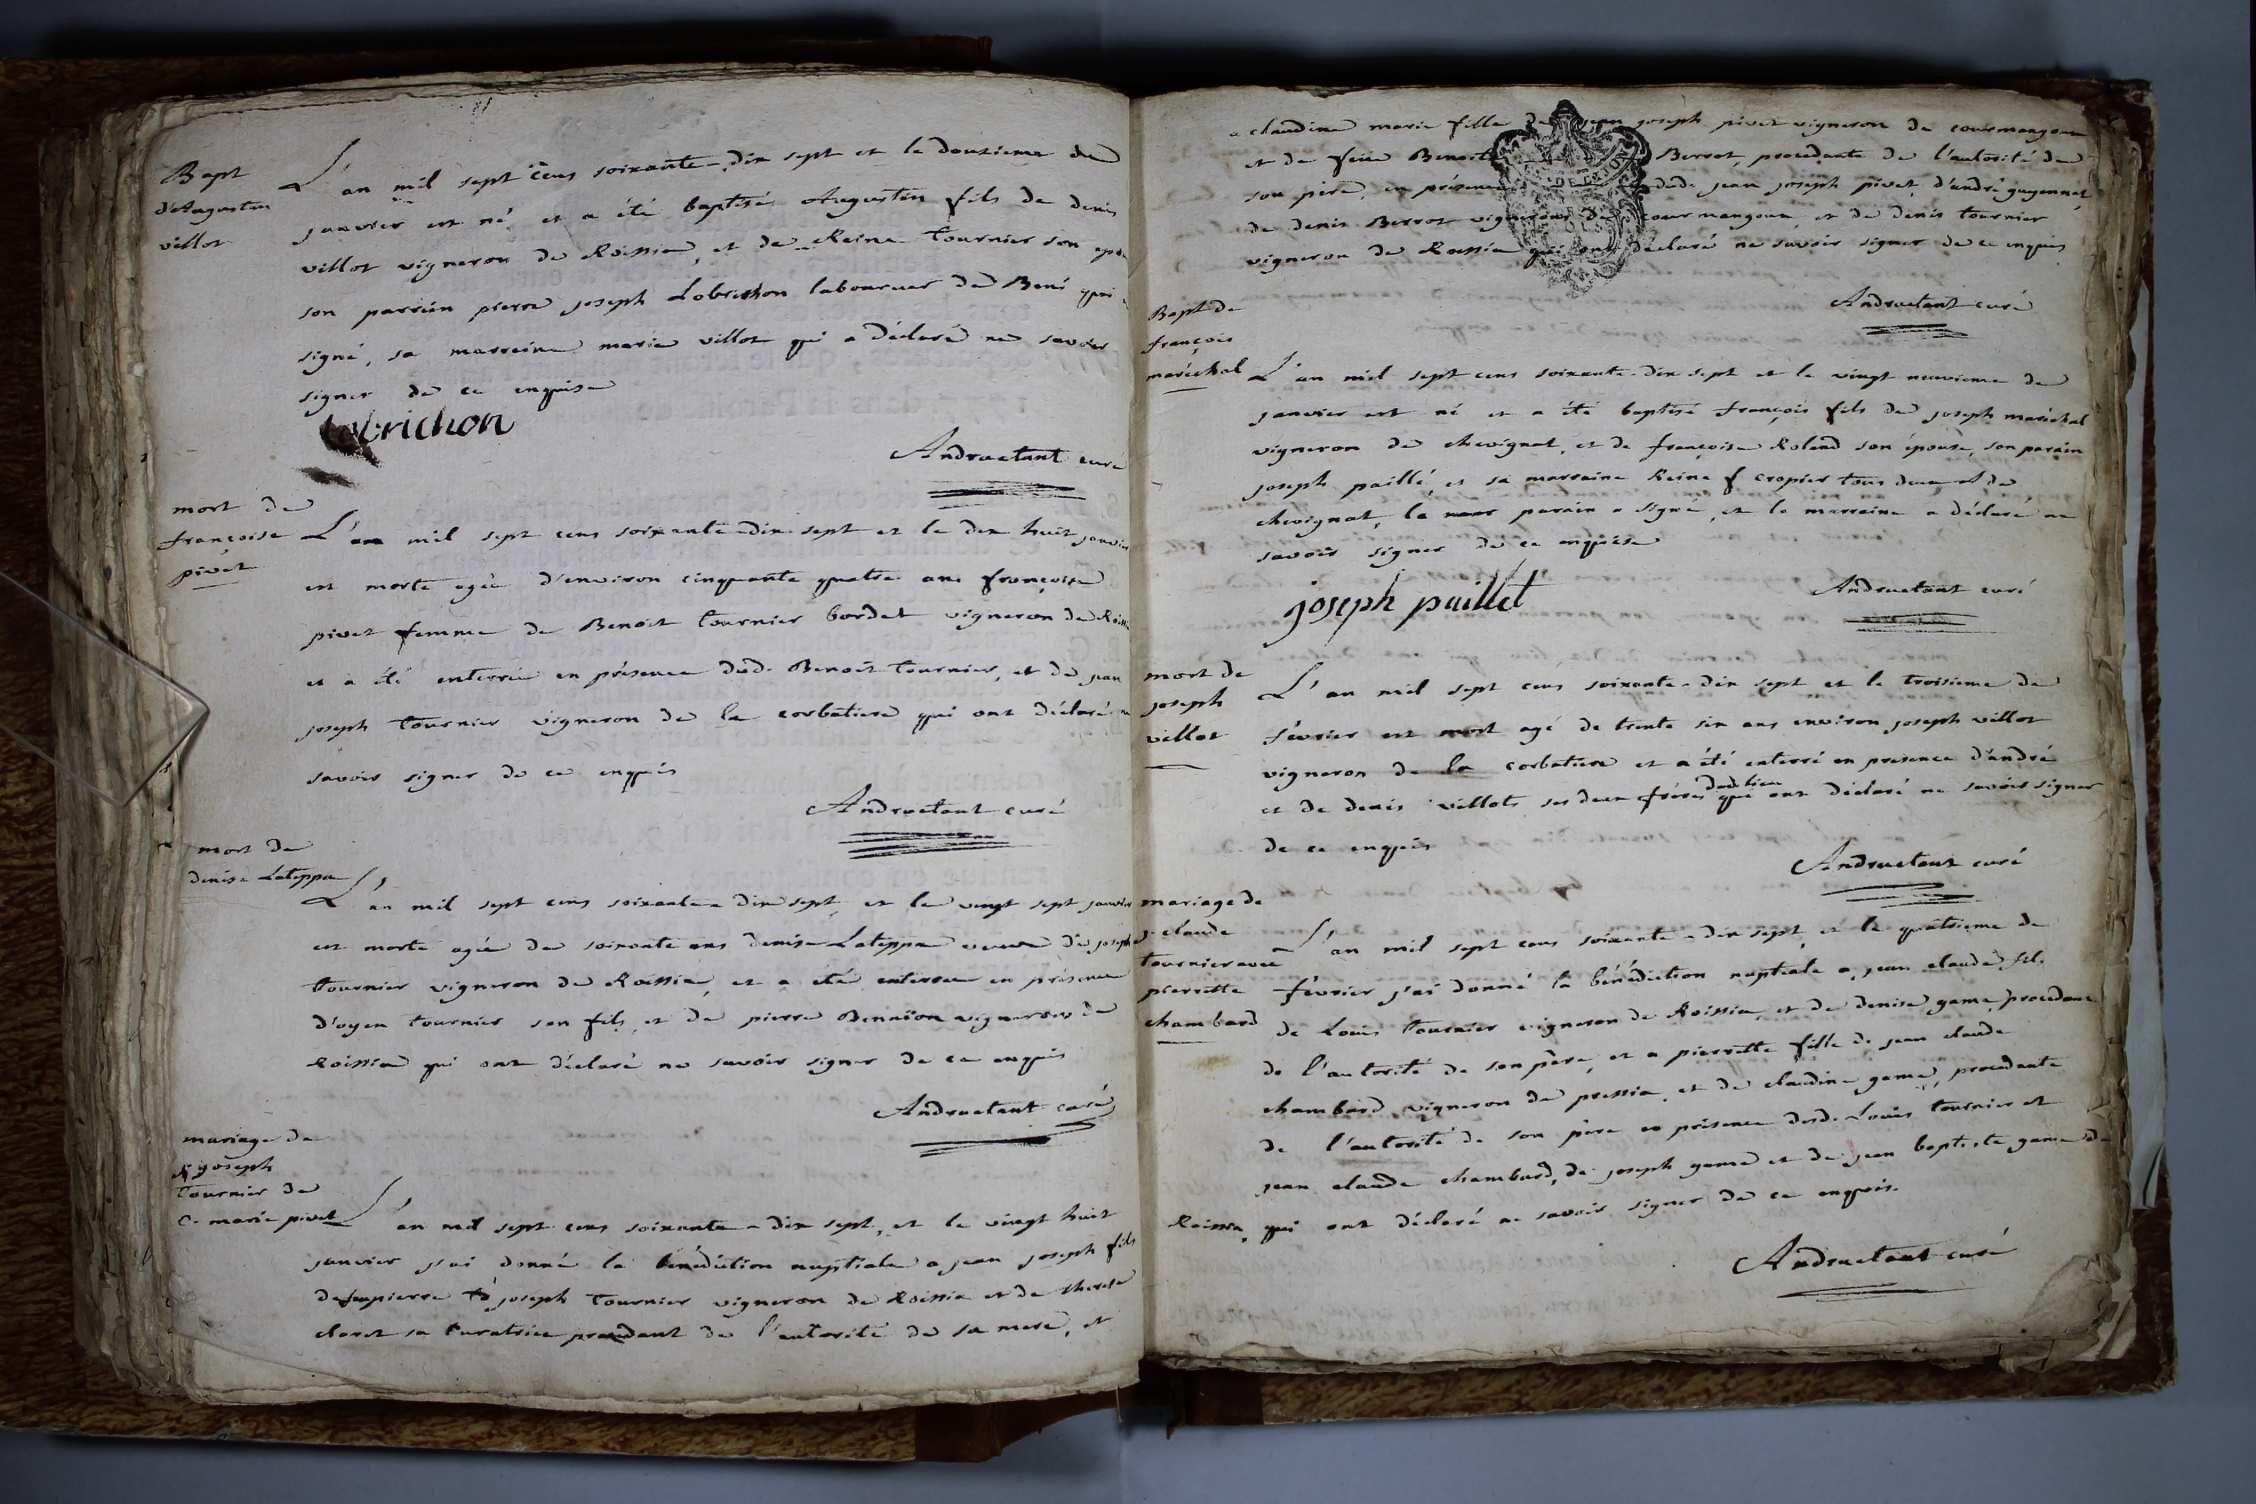 Bapt
d'Augustin
villot
L'an mil sept cens soixante-dix sept et le douzieme de
janvier est né et a été baptisé Augustin fils de denis
villot vigneron de Roissia, et de Reine tournier son
son parrein pierre joseph Lobrichon laboureur de Bené qui a
signé, sa marreine marie villot qui a déclaré ne savoir
signer de ce enquise
Lobrichon
Andruetant curé
mort de
françoise
pivet
L'an mil sept cens soixante-dix sept et le dix huit janvier
est morte agée d'environ cinquante quatre ans françoise
pivet femme de Benoit tournier bordet vigneron de
et a été enterrée en présence dud. Benoit tournier, et de jean
joseph tournier vigneron de la corbatiere qui ont déclaré ne
savoir signer de ce enquis
Andruetant curé
mort de
denise Lateppe
L'an mil sept cens soixante-dix sept, et le vingt sept janvier
est morte agée de soixante ans denise Lateppe veuve de joseph
tournier vigneron de Roissia, et a été enterree en présence
d'oyen tournier son fils, et de pierre vignerons de
Roissia qui ont déclaré ne savoir signer de ce enquis
Andruetant curé
mariage de
joseph
Tournier de
C. marie pivet
L'an mil sept cens soixante-dix sept, et le vingt huit
janvier j'ai donné la bénédiction nuptiale a jean joseph fils
de feu pierre joseph tournier vigneron de Roissia et de therese
cloret sa curatrice procedant de l'autorité de sa mere, et
a claudine marie fille de jean joseph pivet vigneron de courmangoux
et de feüe Benoite Berrot, procedante de l'autorité de
son pere, en présence dud. jean joseph pivet, d'andré guyennet
de denis Berrot vignerons de courmangoux et de denis tournier
vigneron de Roissia qui ont déclaré ne savoir signer de ce enquis
Andruetant curé
Bapt de
françois
maréchal
L'an mil sept cens soixante-dix sept et le vingt neuvieme de
janvier est né et a été baptisé françois fils de joseph maréchal
vigneron de chevignat, et de françoise Roland son épouse, son parain
joseph paillé, et sa marraine Reine cropier tous deux de
chevignat, le parain a signé, et la marraine a déclaré ne
savoir signer de ce enquise
joseph paillet
Andruetant curé
mort de
joseph
villot
L'an mil sept cens soixante-dix sept et le troisieme de
février est mort agé de trente six ans environ joseph villot
vigneron de la corbatiere et a été enterré en presence d'andré
et de denis villots ses deux fréres dud. lieu qui ont déclaré ne savoir signer
de ce enquis
Andruetant curé
mariage de
j. claude
tournier avec
pierrette
chambard
L'an mil sept cens soixante-dix sept, et le quatrieme de
février j'ai donné la bénédiction nuptiale a jean claude fils
de Louis tournier vigneron de Roissia, et de denise game, procedant
de l'autorité de son pere, et a pierrette fille de jean claude
chambard vigneron de pressia, et de claudine game, procedante
de l'autorité de son pere en présence desd. Louis tournier et
jean claude chambard, de joseph game et de jean baptiste game de
Roissia, qui ont déclaré ne savoir signer de ce enquis.
Andruetant curé